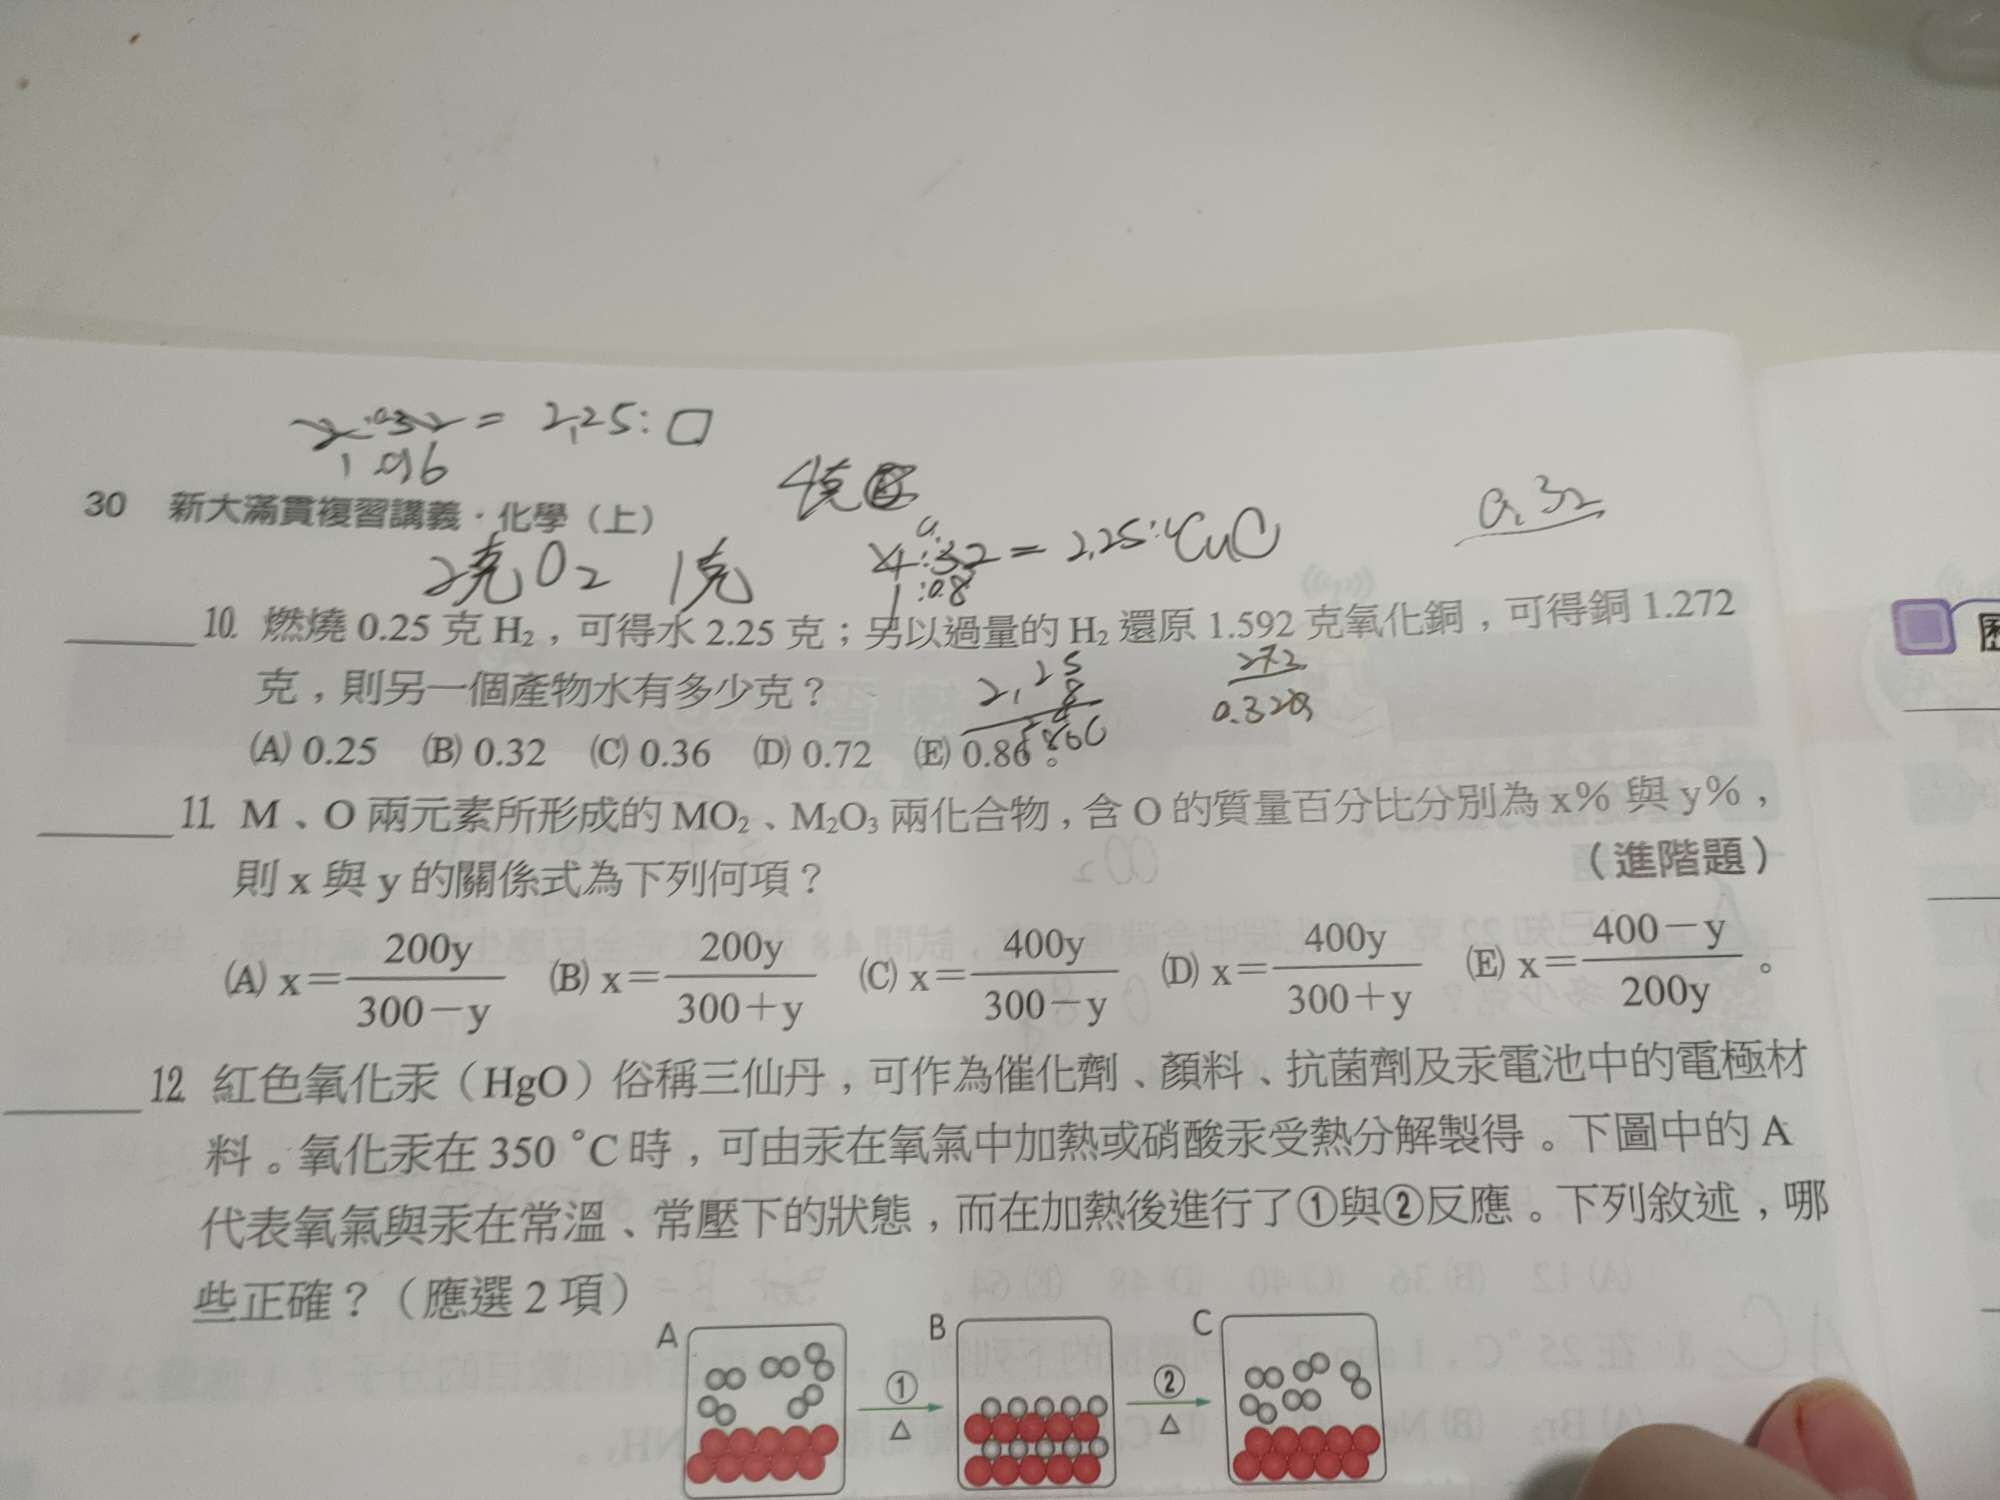 = 2.25:□
1 0.16
4克
0.32
30 新大滿貫複習講義·化學（上）
2克 O₂ 1克
4:32 = 2.25:CuO
1:0.8
10. 燃燒 0.25 克 H₂，可得水 2.25 克；另以過量的 H₂ 還原 1.592 克氧化銅，可得銅 1.272
克，則另一個產物水有多少克？
2.25
8
272
0.320
(A) 0.25 (B) 0.32 (C) 0.36 (D) 0.72 (E) 0.86。
11. M、O 兩元素所形成的 MO₂、M₂O₃ 兩化合物，含 O 的質量百分比分別為 x% 與 y%，
則 x 與 y 的關係式為下列何項？ （進階題）
(A) x=200y/(300−y) (B) x=200y/(300+y) (C) x=400y/(300−y) (D) x=400y/(300+y) (E) x=(400−y)/200y。
12. 紅色氧化汞（HgO）俗稱三仙丹，可作為催化劑、顏料、抗菌劑及汞電池中的電極材
料。氧化汞在 350 ℃ 時，可由汞在氧氣中加熱或硝酸汞受熱分解製得。下圖中的 A
代表氧氣與汞在常溫、常壓下的狀態，而在加熱後進行了①與②反應。下列敘述，哪
些正確？（應選 2 項）
A ① △ B ② △ C